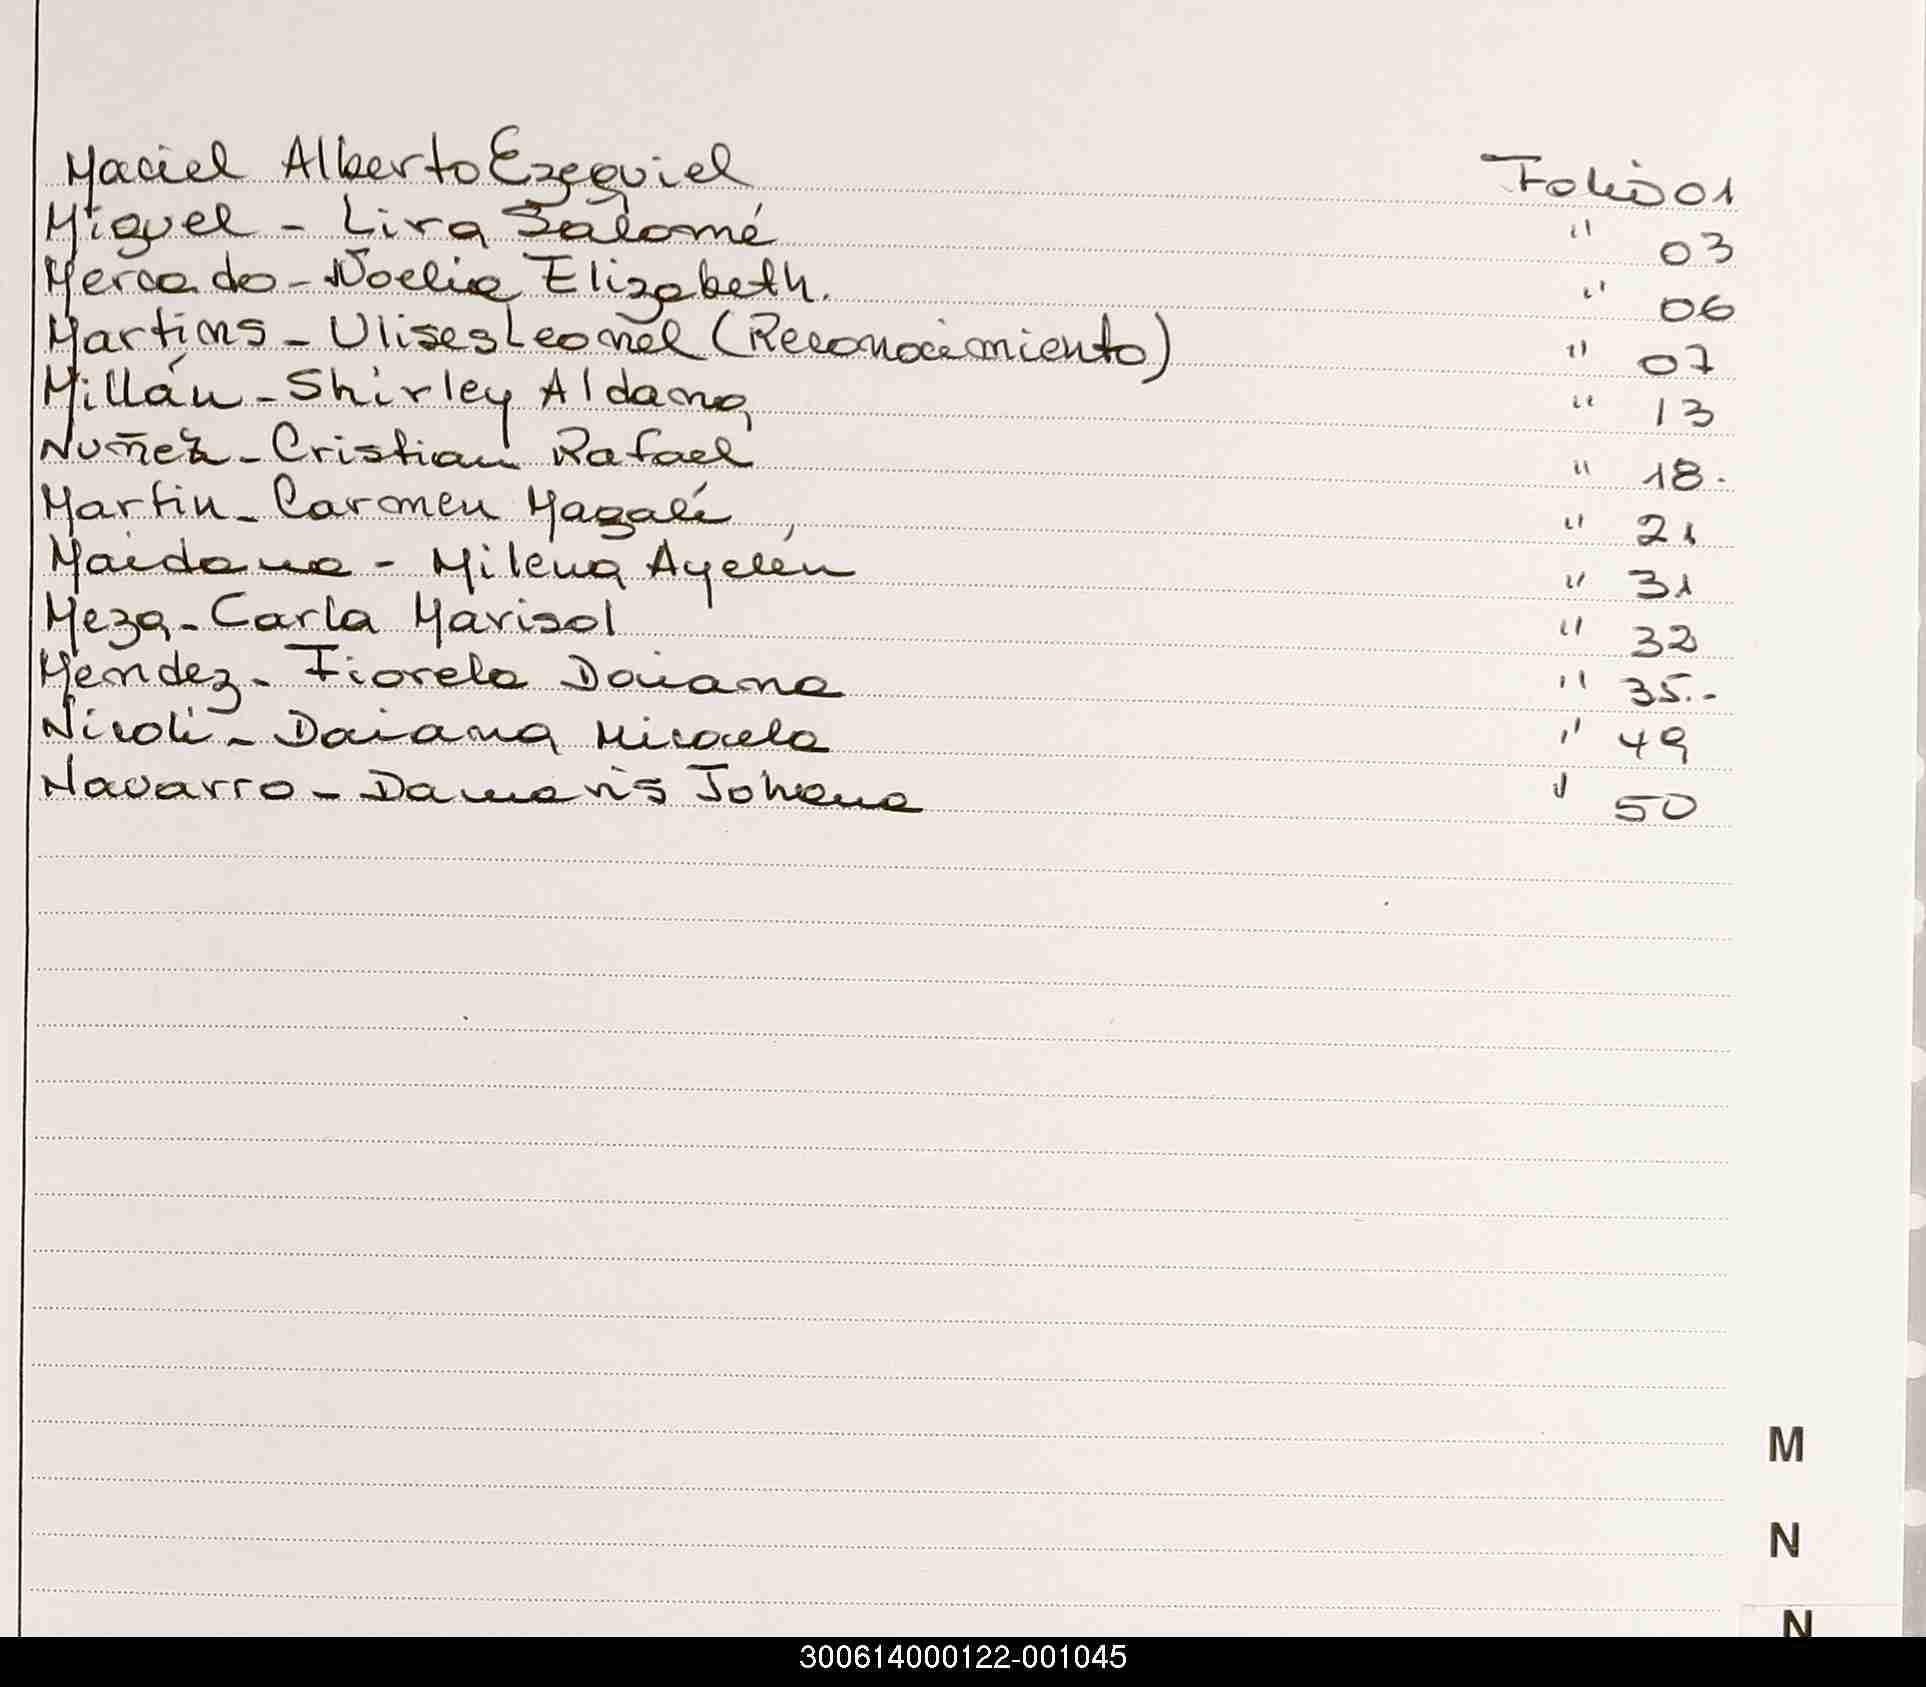 Maciel Alberto Ezequiel Folio 01
Miguel - Lira Salomé " 03
Mercado - Noelia Elizabeth. " 06
Martins - Ulises Leonel (Reconocimiento) " 07
Millán - Shirley Aldana " 13
Nuñez - Cristian Rafael " 18.
Martin - Carmen Magalí " 21
Maidana - Milena Ayelén " 31
Meza - Carla Marisol " 32
Mendez - Fiorela Daiana " 35.-
Nicoli - Daiana Micaela " 49
Navarro - Damaris Johana " 50
M
N
N
300614000122-001045